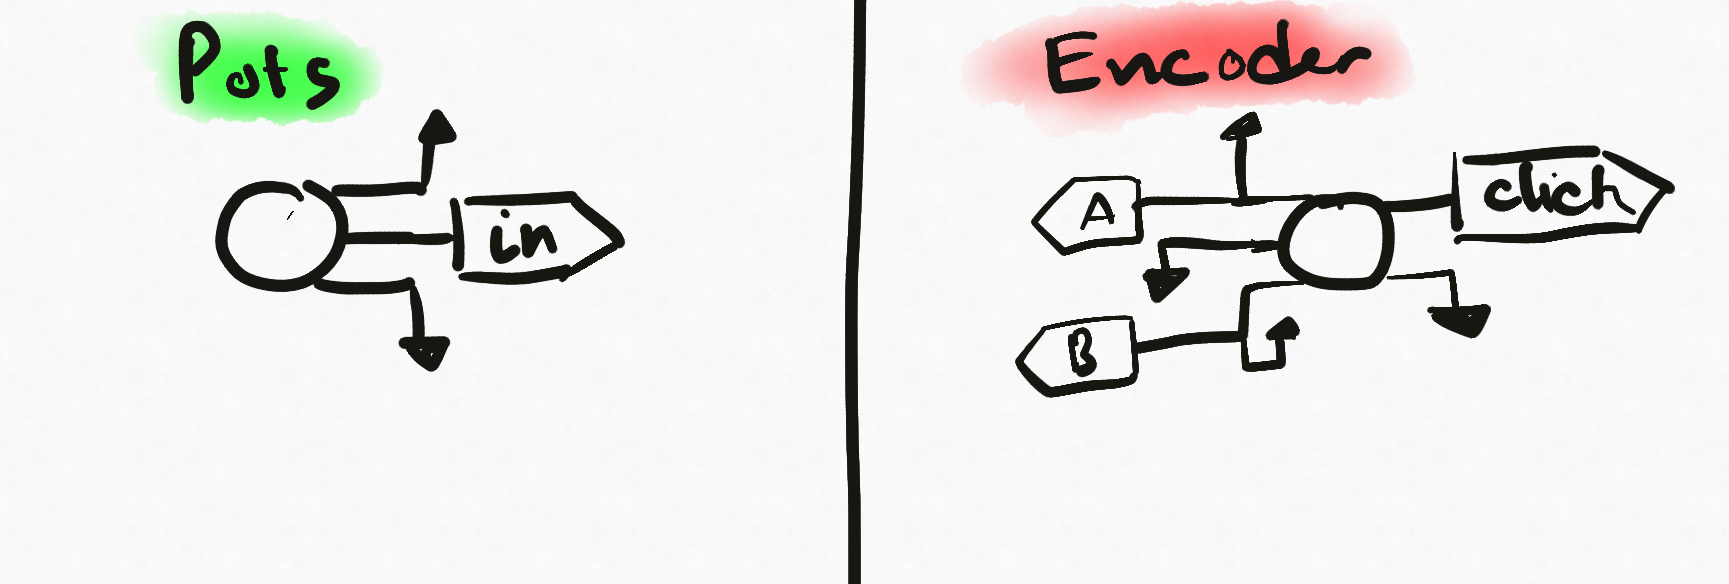 Pots
in
Encoder
A
click
B